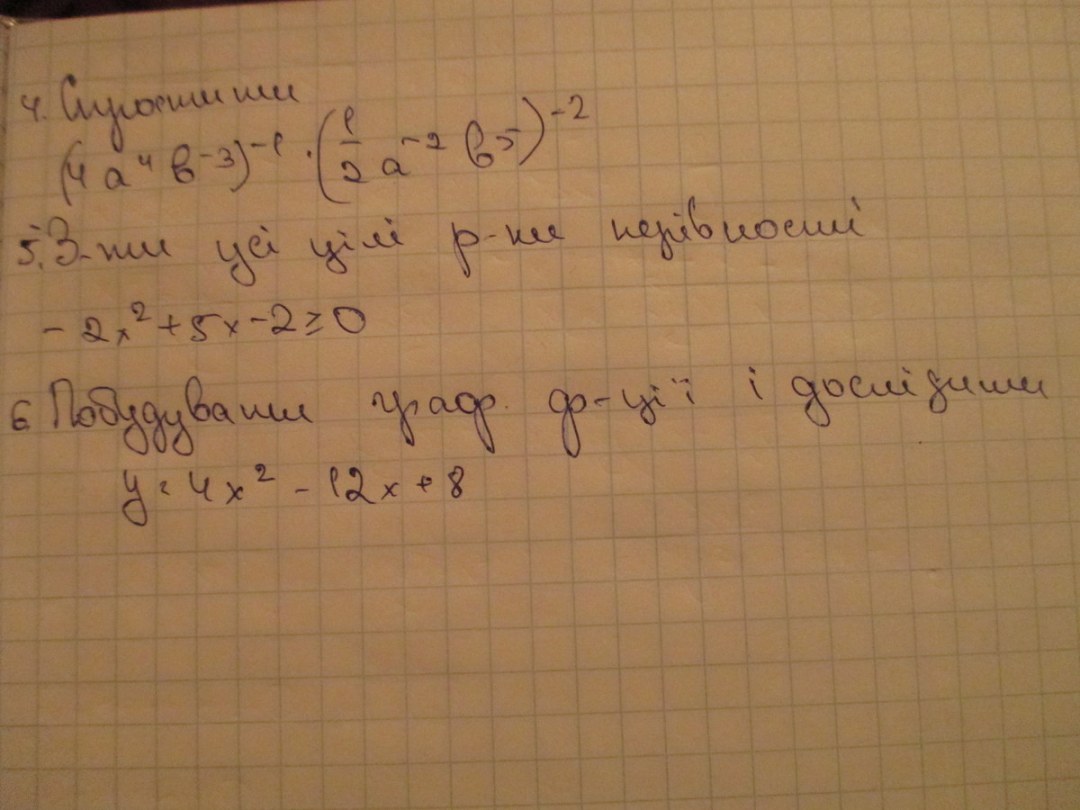 4. Спростити
(4a⁴b⁻³)⁻¹ · (1/2 a⁻² b⁵)⁻²
5. З-ти усі цілі р-ки нерівності
-2x²+5x-2≥0
6 Побудувати граф. ф-ції і дослідити
y = 4x² - 12x + 8